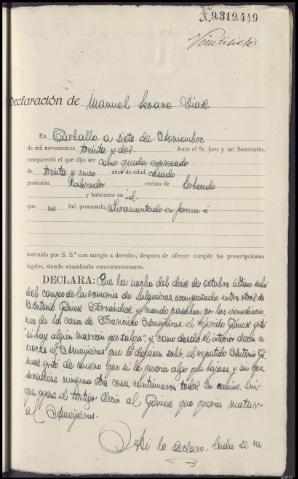 A.9.319.449
Veintisiete
Declaración de Manuel Lozano Diaz
En Carballo a siete de Noviembre
de mil novecientos treinta y dos. Ante el Sr. Juez y mi Secretario,
compareció el que dijo ser como queda expresado
de treinta y cinco años de edad casado
profesión Labrador vecino de
y habitante en id.
que no fué procesado. Juramentado en forma é
instruido por S. Sª con arreglo a derecho, después de ofrecer cumplir las prescripciones
legales, siendo examinado convenientemente.
DECLARA: Que la noche del dia de octubre último salió
del campo de la romería de acompañado entre otros de
Antonio Gómez Fernández y cuando pasaban por las inmediacio-
nes de la casa de Francisco Ameijeiras el referido Gómez gritó
"si hay algún maricón que salga", y como desde el interior decía a
voces el Ameijeiras que le dejasen salir, el repetido Antonio Gó-
mez gritó de nuevo que si le queria algo que bajase, y sin que
sucediera ninguna otra cosa continuaron todos su camino, sin
que oyera el testigo decir al Gómez que queria matar
a Ameijeiras.
Asi lo declara, leida se ra